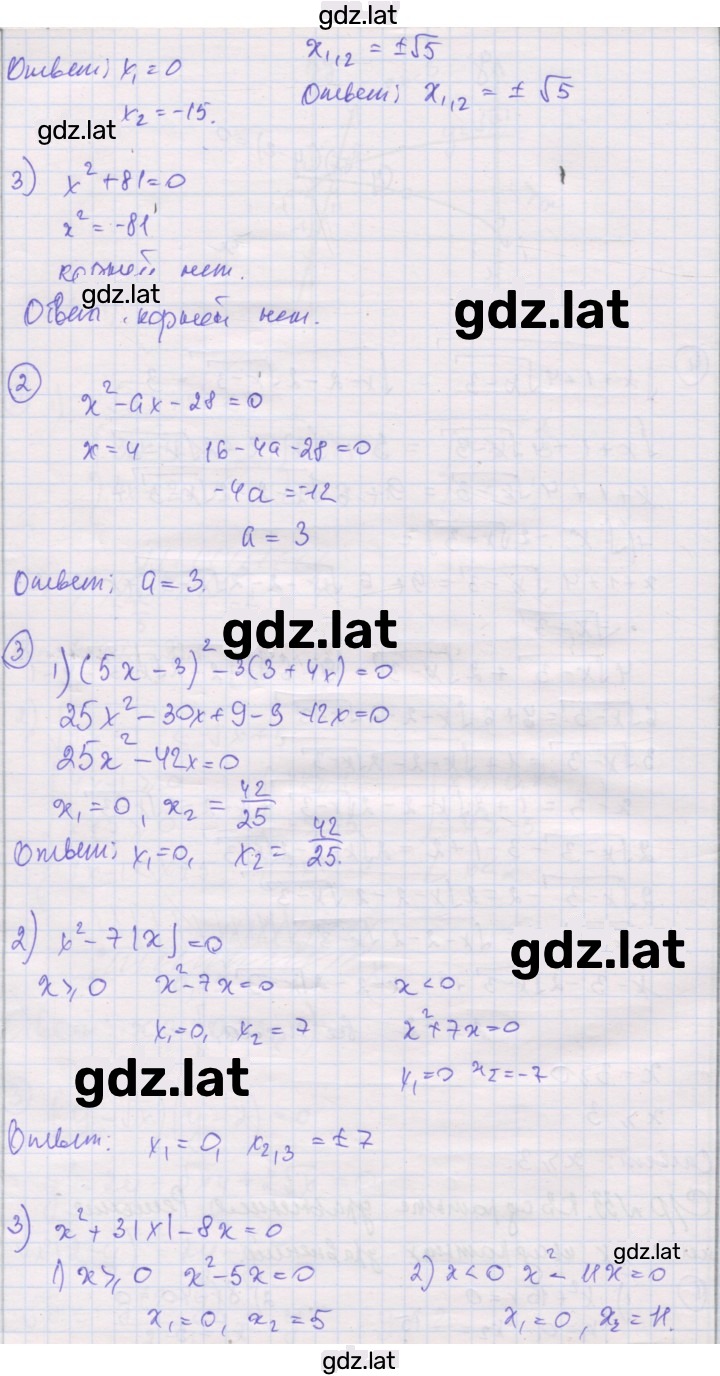 gdz.lat
Ответ; x₁ = 0
x₂ = -15.
x₁,₂ = ±√5
Ответ; x₁,₂ = ±√5
gdz.lat
3) x² + 81 = 0
x² = -81
корней нет.
gdz.lat
Ответ: корней нет.
gdz.lat
② x² - ax - 28 = 0
x = 4 16 - 4a - 28 = 0
-4a = -12
a = 3
Ответ; a = 3.
gdz.lat
③ 1) (5x - 3)² - 3(3 + 4x) = 0
25x² - 30x + 9 - 9 - 12x = 0
25x² - 42x = 0
x₁ = 0, x₂ = 42/25
Ответ; x₁ = 0, x₂ = 42/25.
2) x² - 7|x| = 0
gdz.lat
x ⩾ 0 x² - 7x = 0 x < 0
x₁ = 0, x₂ = 7 x² + 7x = 0
x₁ = 0 x₂ = -7
gdz.lat
Ответ: x₁ = 0, x₂,₃ = ±7
3) x² + 3|x| - 8x = 0
gdz.lat
1) x ⩾ 0 x² - 5x = 0 2) x < 0 x² - 11x = 0
x₁ = 0, x₂ = 5 x₁ = 0, x₂ = 11.
gdz.lat